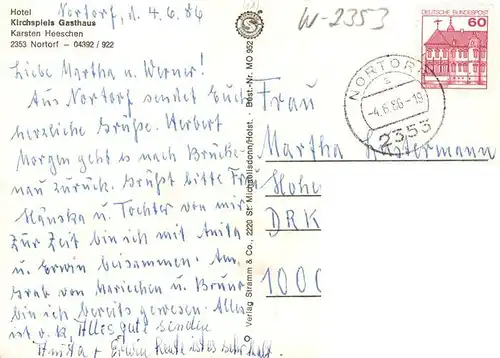 Hotel
Kirchspiels Gasthaus
Karsten Heeschen
2353 Nortorf - 04392 / 922
Nortorf, d. 4.6.86
Liebe Martha u. Werner!
Aus Nortorf sendet Euch
herzliche Grüße. Herbert
Morgen geht es nach Brücke-
nau zurück. Grüßt bitte Frau
u. Tochter von mir
Zur Zeit bin ich mit Anita
u. Erwin beisammen. Am
Grab von Mariechen u. Bruno
bin ich bereits gewesen. Alles
ist o.k. Alles gute senden
Anita + Erwin heute ist es sehr kalt.
Verlag Stramm & Co., 2220 St. Michaelisdonn/Holst. · Best.-Nr. MO 952
W-2353
DEUTSCHE BUNDESPOST
60
NORTORF
a
-4.6.86-19
2353
Frau
Martha
Hohe
DRK
1000